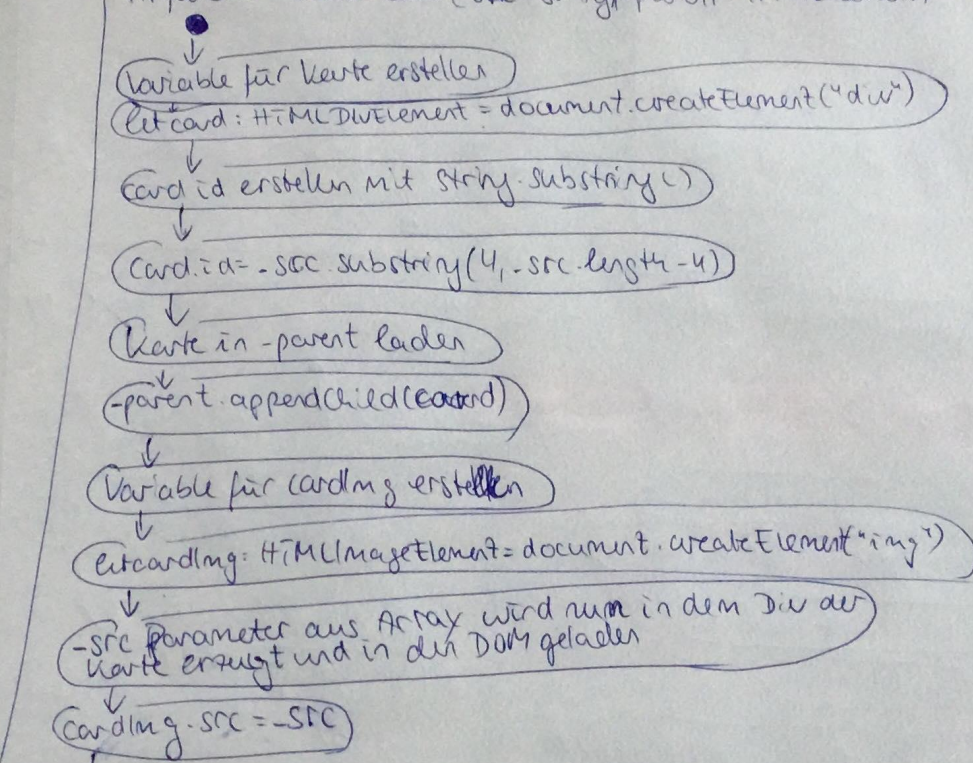 Variable für Karte erstellen
let card: HTMLDivElement = document.createElement("div")
Card id erstellen mit String.substring()
Card.id= _src.substring(4, _src.length-4)
Karte in _parent laden
_parent.appendChild(card)
Variable für cardImg erstellen
let cardImg: HTMLImageElement= document.createElement("img")
_src Parameter aus Array wird nun in dem Div der
Karte erzeugt und in den DOM geladen
CardImg.src = _src